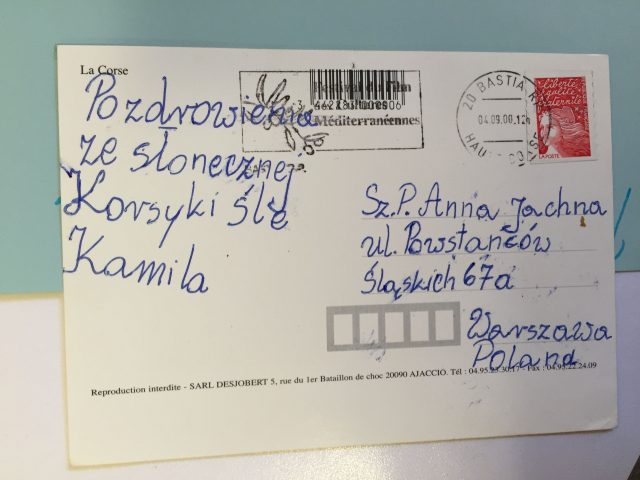 La Corse
Pozdrowienia
ze słonecznej
Korsyki śle
Kamila
Festival du Film
3 462183 000906
& Cultures
Méditerranéennes
20 BASTIA
04.09.00.12h
HAUTE CORSE
liberté
égalité
fraternité
LA POSTE
Sz.P. Anna Jachna
ul. Powstańców
Śląskich 67a
Warszawa
Poland
Reproduction interdite - SARL DESJOBERT 5, rue du 1er Bataillon de choc 20090 AJACCIO. Tél : 04.95.23.30.17 - Fax : 04.95.22.24.09